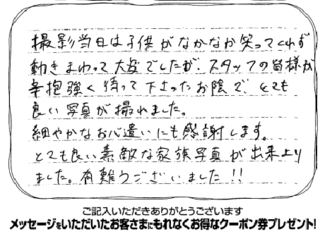 撮影当日は子供がなかなか笑ってくれず
動きまわって大変でしたが、スタッフの皆様が
辛抱強く待って下さったお陰で、とても
良い写真が撮れました。
細やかなお心遣いにも感謝します。
とても良い素敵な家族写真が出来上り
ました。有難うございました!!
ご記入いただきありがとうございます
メッセージをいただいたお客さまにもれなくお得なクーポン券プレゼント!